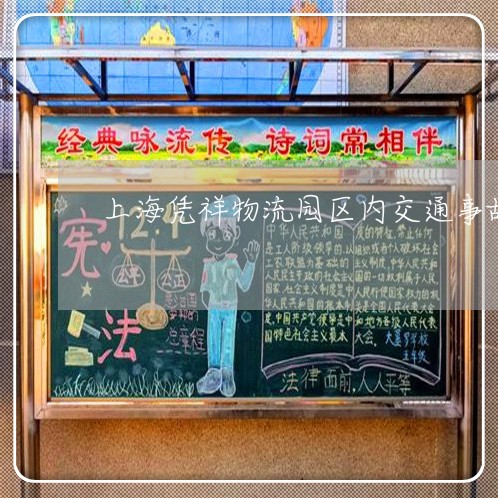 经典咏流传 诗词常相伴
上海凭祥物流园区内交通事故
12.4
宪
法
公平
公正
总章程
中华人民共和国
是工人阶级领导的,以
工农联盟为基础的
人民民主专政的社会主义
国家,社会主义制度是中
华人民共和国的根本制
度,中国共产党领导是中
国特色社会主义最本
质的特征,禁止任何
组织或者个人破坏社会
主义制度,中华人民共和
国的一切权利属于人民,
人民行使国家权力的机
关是全国人民代表大会
和地方各级人民代表
大会。
五年级
法律面前,人人平等